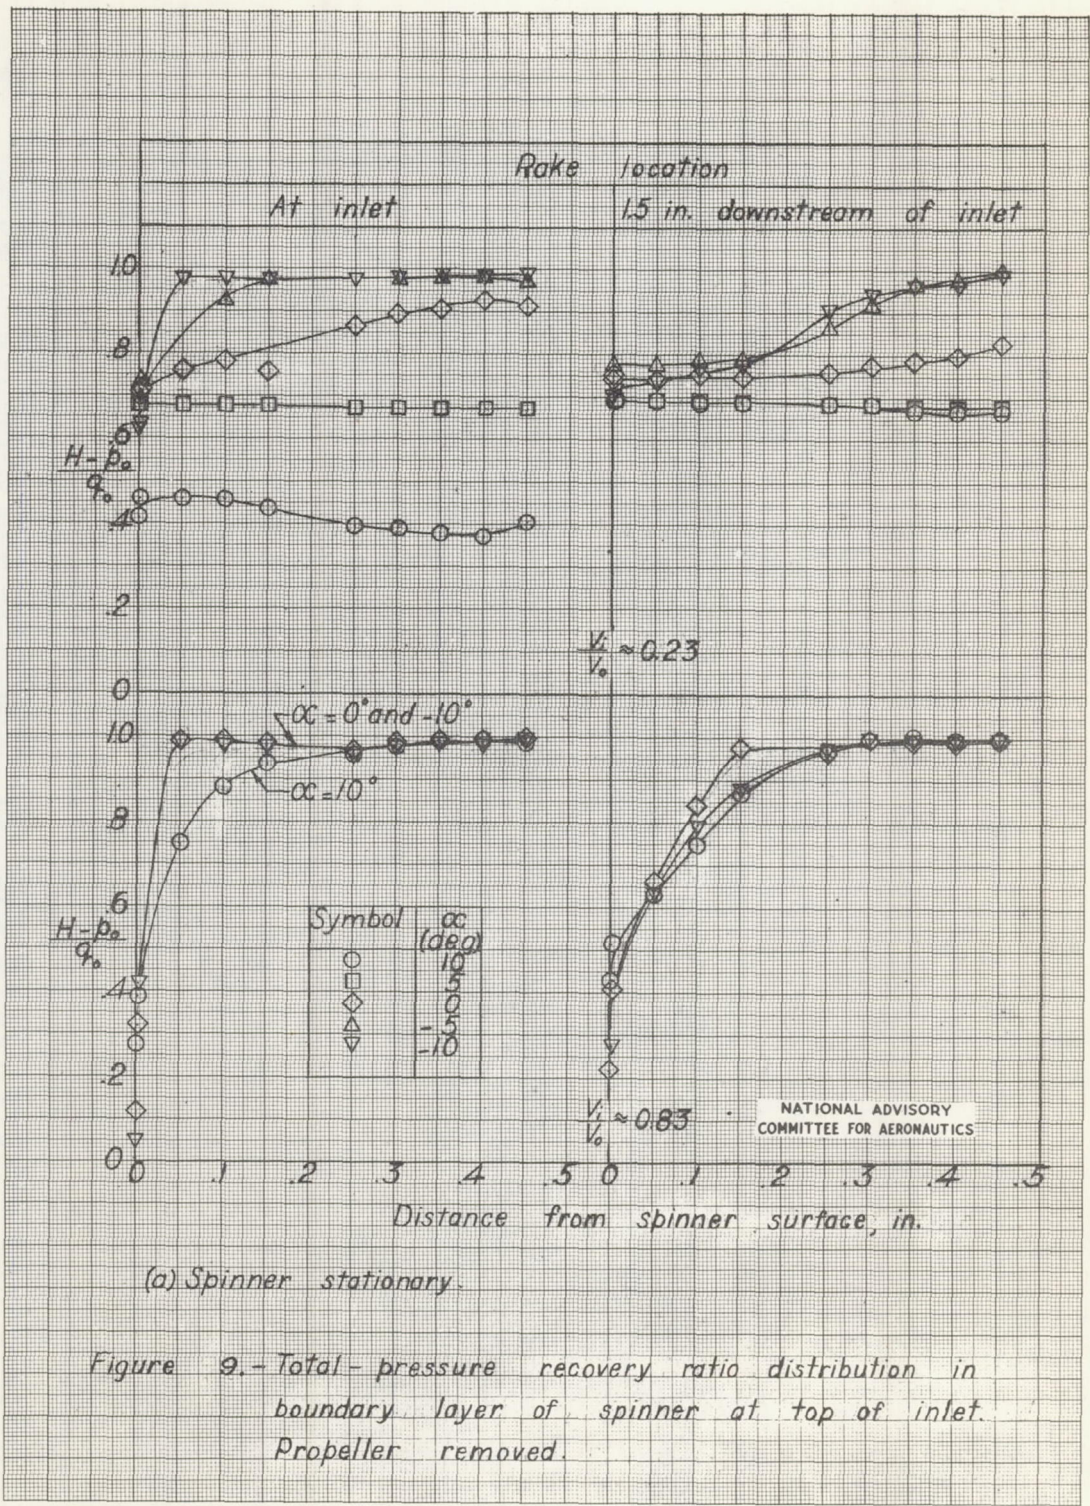 Rake location
At inlet
1.5 in. downstream of inlet
1.0
.8
.6
H - p₀
q₀
.4
.2
0
Vᵢ
V₀
≈ 0.23
1.0
α = 0° and -10°
α = 10°
.8
.6
H - p₀
q₀
.4
.2
0
Symbol α
(deg)
10
5
0
-5
-10
Vᵢ
V₀
≈ 0.83
NATIONAL ADVISORY
COMMITTEE FOR AERONAUTICS
0 .1 .2 .3 .4 .5 0 .1 .2 .3 .4 .5
Distance from spinner surface, in.
(a) Spinner stationary.
Figure 9.- Total - pressure recovery ratio distribution in
boundary layer of spinner at top of inlet.
Propeller removed.